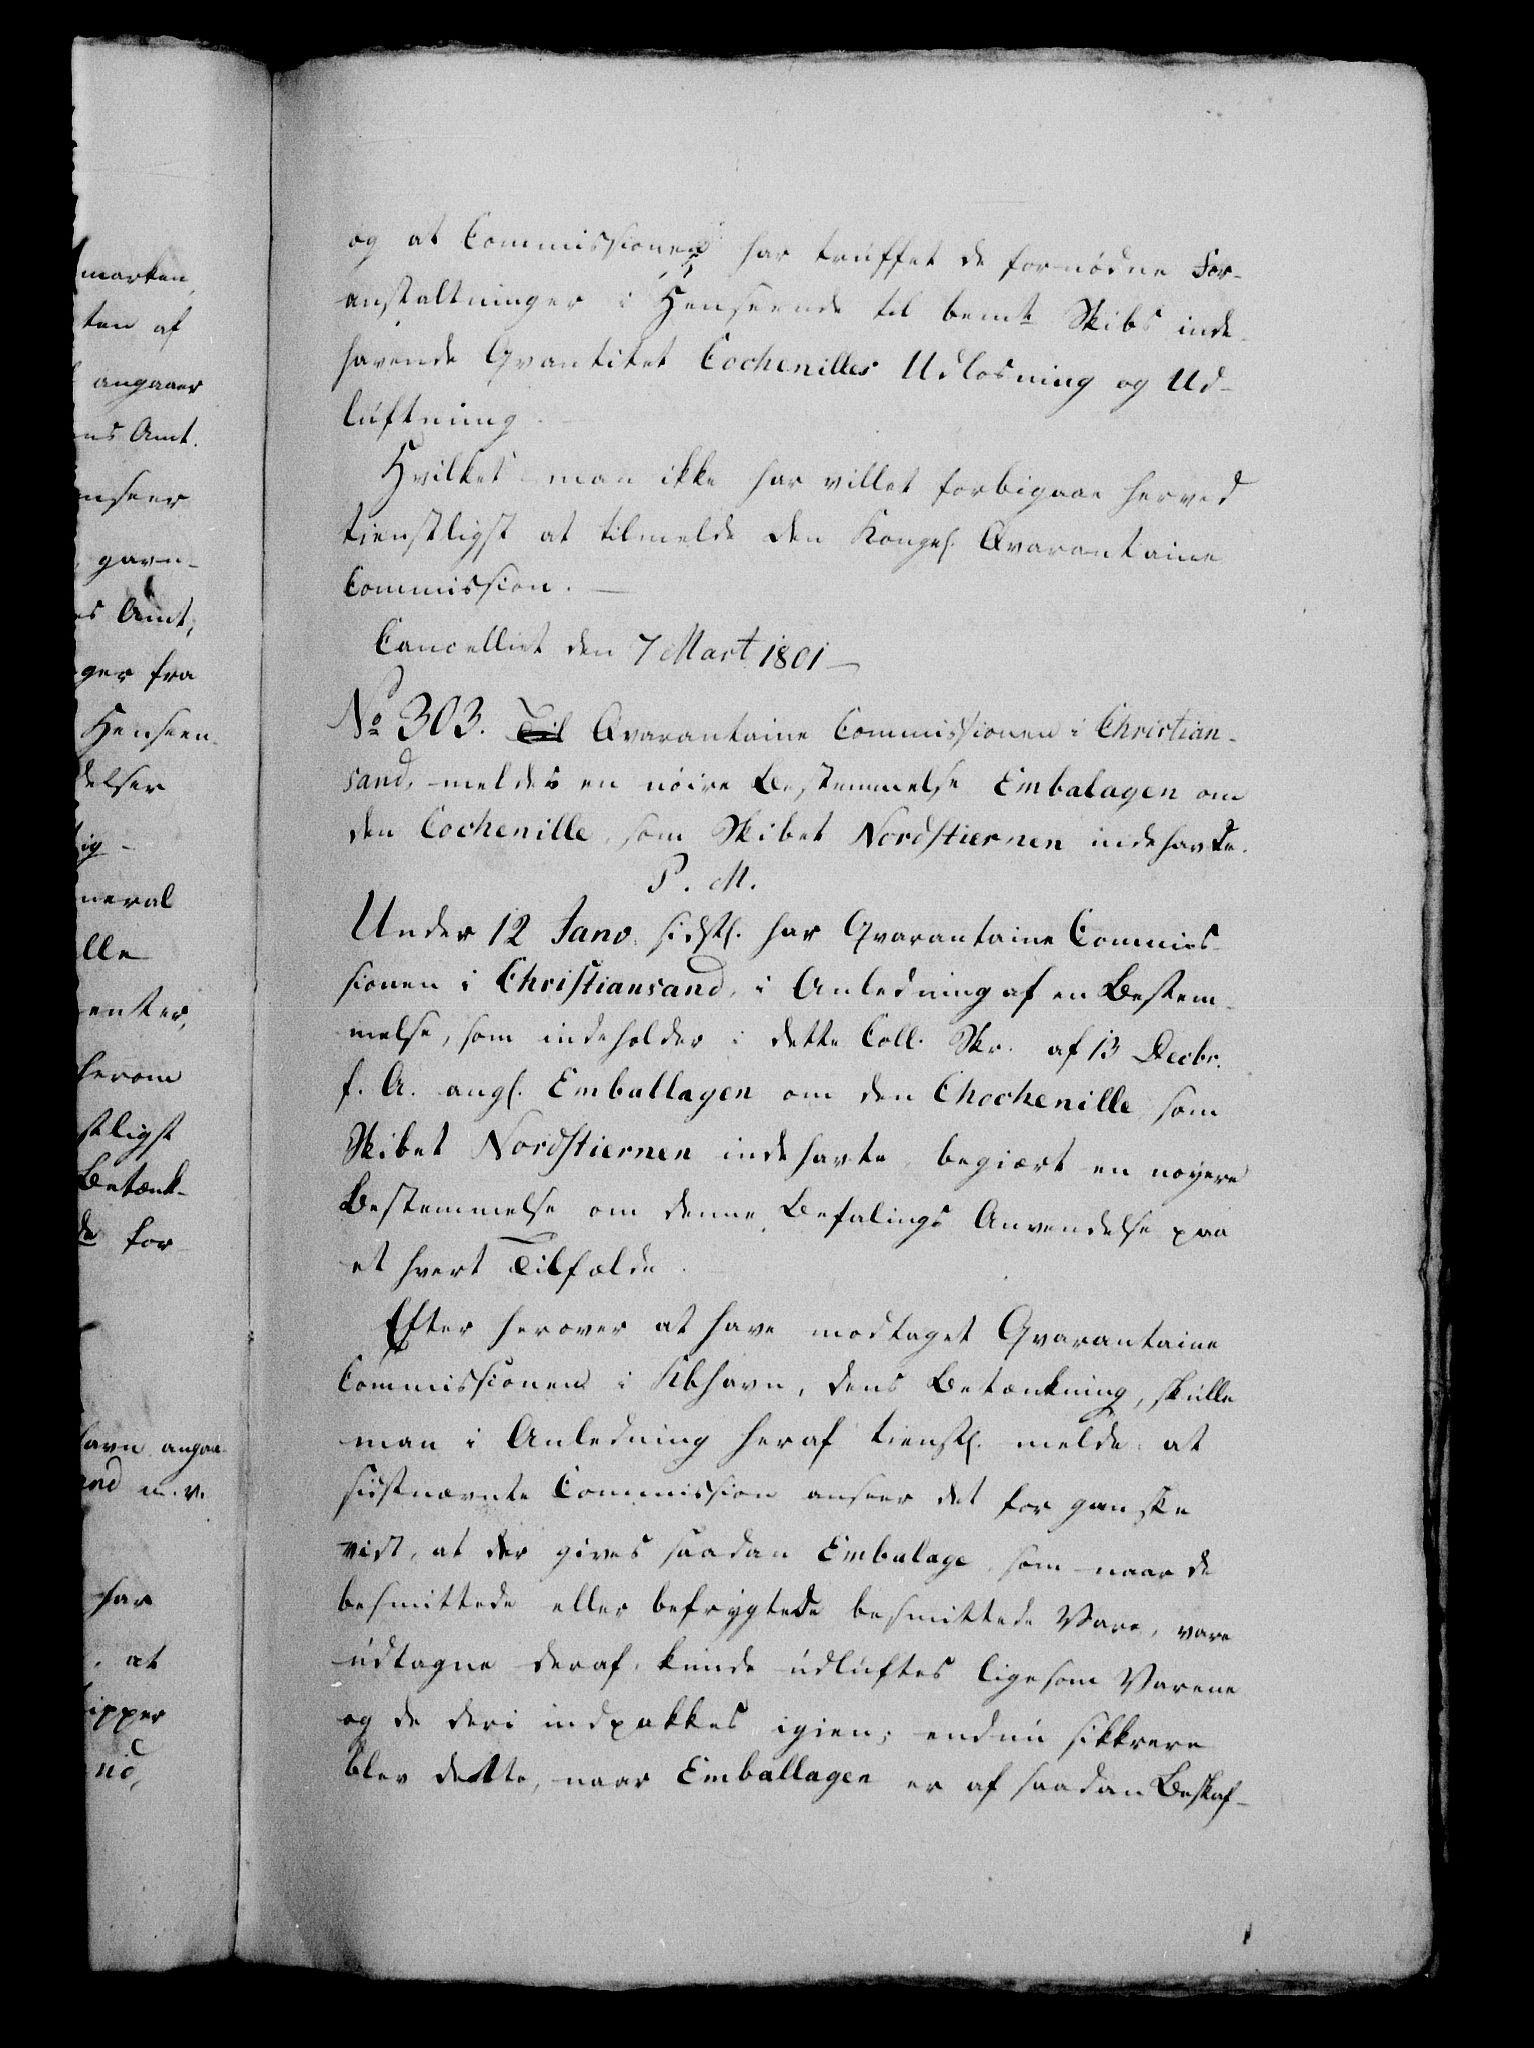 marken,
ten af
angaaer
ns Amt.
nseer
gavn-
es Amt,
ger fra
Henseen-
delser
ig -
neral
lle
enter,
herom
stligst
Betænk-
de for-
havn angaa-
and m. v.
har
, at
ipper
nd,
og at Commissionen har truffet de fornødne For-
anstaltninger i Henseende til bemte Skibs inde-
havende Qvantitet Cochenilles Udlosning og Ud-
luftning.
Hvilket man ikke har villet forbigaae herved
tienstligst at tilmelde den Kongel. Qvarantaine
Commission. —
Cancelliet den 7 Mart 1801 —
No 303. Til Qvarantaine Commissionen i Christian-
sand, meldes en nøire Bestemmelse Embalagen om
den Cochenille, som Skibet Nordstiernen indehavde.
P. M.
Under 12 Janv. sidstl. har Qvarantaine Commis-
sionen i Christiansand, i Anledning af en Bestem-
melse, som indeholder i dette Coll. Skr. af 13 Decbr.
f. A. angl. Emballagen om den Chochenille som
Skibet Nordstiernen indehavte, begiært en nøyere
Bestemmelse om denne Befalings Anvendelse paa
et hvert Tilfælde.
Efter herover at have modtaget Qvarantaine
Commissionen i Kbhavn, dens Betænkning, skulle
man i Anledning heraf tienstl. melde: at
sidstnævnte Commission anseer det for ganske
vist, at der gives saadan Embalage, som naar de
besmittede eller befrygtede besmittede Vare, vare
udtagne deraf, kunde udluftes ligesom Varene
og de deri indpakkes igien; endnu sikkrere
blev dette, naar Emballagen er af saadan Beskaf-